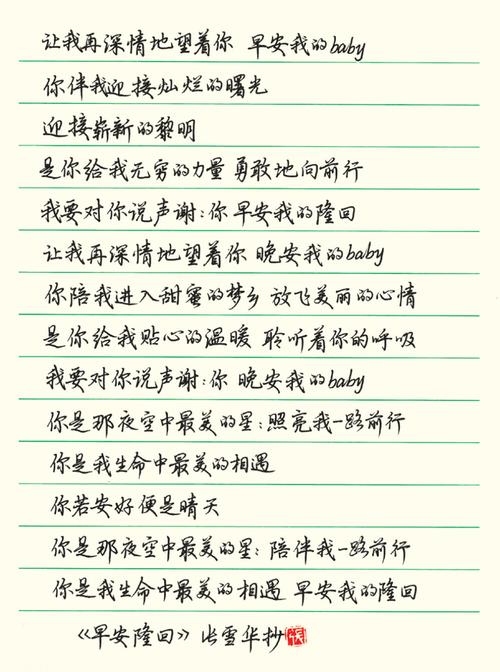 让我再深情地望着你 早安我的baby
你伴我迎接灿烂的曙光
迎接崭新的黎明
是你给我无穷的力量 勇敢地向前行
我要对你说声谢:你 早安我的隆回
让我再深情地望着你 晚安我的baby
你陪我进入甜蜜的梦乡 放飞美丽的心情
是你给我贴心的温暖 聆听着你的呼吸
我要对你说声谢:你 晚安我的baby
你是那夜空中最美的星:照亮我一路前行
你是我生命中最美的相遇
你若安好便是晴天
你是那夜空中最美的星:陪伴我一路前行
你是我生命中最美的相遇 早安我的隆回
《早安隆回》 张雪华抄